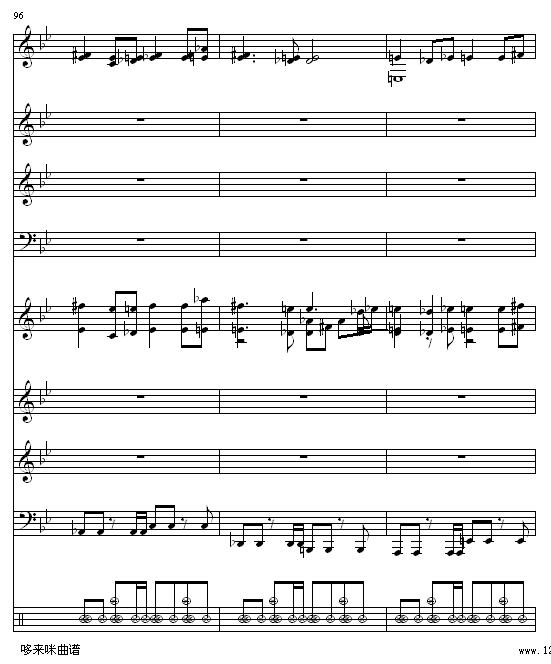 96
哆来咪曲谱
www.12